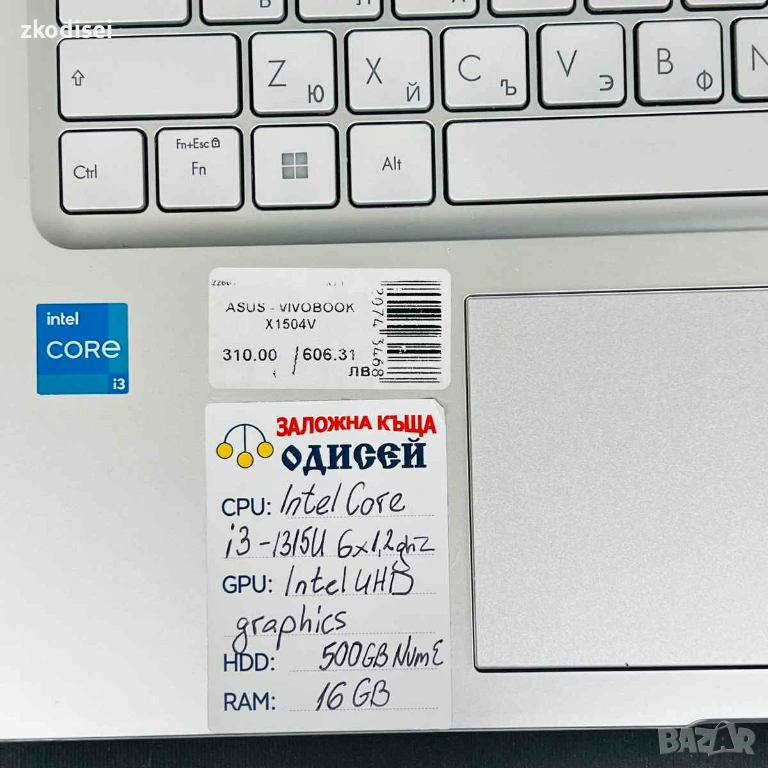 zkodisei
Z Ю X Й C Ъ V Э B Ф N
Fn+Esc
Ctrl Fn Alt
intel
CORE
i3
ASUS - VIVOBOOK
X1504V
310.00 / 606.31
ЛВ
ЗАЛОЖНА КЪЩА
ОДИСЕЙ
CPU: Intel Core
i3-1315U 6x1,2ghz
GPU: Intel UHD
graphics
HDD: 500GB NvmE
RAM: 16 GB
BAZAR